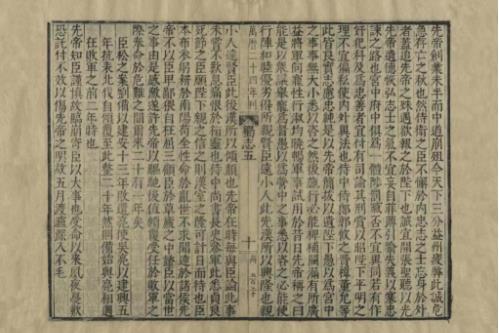 先帝創業未半而中道崩殂今天下三分益州疲弊此誠危
急存亡之秋也然侍衛之臣不懈於內忠志之士忘身於外
者蓋追先帝之殊遇欲報之於陛下也誠宜開張聖聽以光
先帝遺德恢弘志士之氣不宜妄自菲薄引喻失義以塞忠
諫之路也宮中府中俱爲一體陟罰臧否不宜異同若有作
姦犯科及爲忠善者宜付有司論其刑賞以昭陛下平明之
理不宜偏私使內外異法也侍中侍郎郭攸之費禕董允等
此皆良實志慮忠純是以先帝簡拔以遺陛下愚以爲宮中
之事事無大小悉以咨之然後施行必能裨補闕漏有所廣
益將軍向寵性行淑均曉暢軍事試用於昔日先帝稱之曰
能是以衆議舉寵爲督愚以爲營中之事悉以咨之必能使
行陣和穆優劣得所親賢臣遠小人此先漢所以興隆也親
萬曆二十四年刊
蜀志五
十
小人遠賢臣此後漢所以傾頹也先帝在時每與臣論此事
未嘗不歎息痛恨於桓靈也侍中尚書長史參軍此悉貞良
死節之臣願陛下親之信之則漢室之隆可計日而待也臣
本布衣躬耕於南陽苟全性命於亂世不求聞達於諸侯先
帝不以臣卑鄙猥自枉屈三顧臣於草廬之中諮臣以當世
之事由是感激遂許先帝以驅馳後值傾覆受任於敗軍之
際奉命於危難之間爾來二十有一年矣
臣松之案劉備以建安十三年敗遣亮使吳亮以建興五
年抗表北伐自傾覆至此整二十年然則備始與亮相遇
在敗軍之前一年時也
先帝知臣謹慎故臨崩寄臣以大事也受命以來夙夜憂歎
恐託付不效以傷先帝之明故五月渡瀘深入不毛